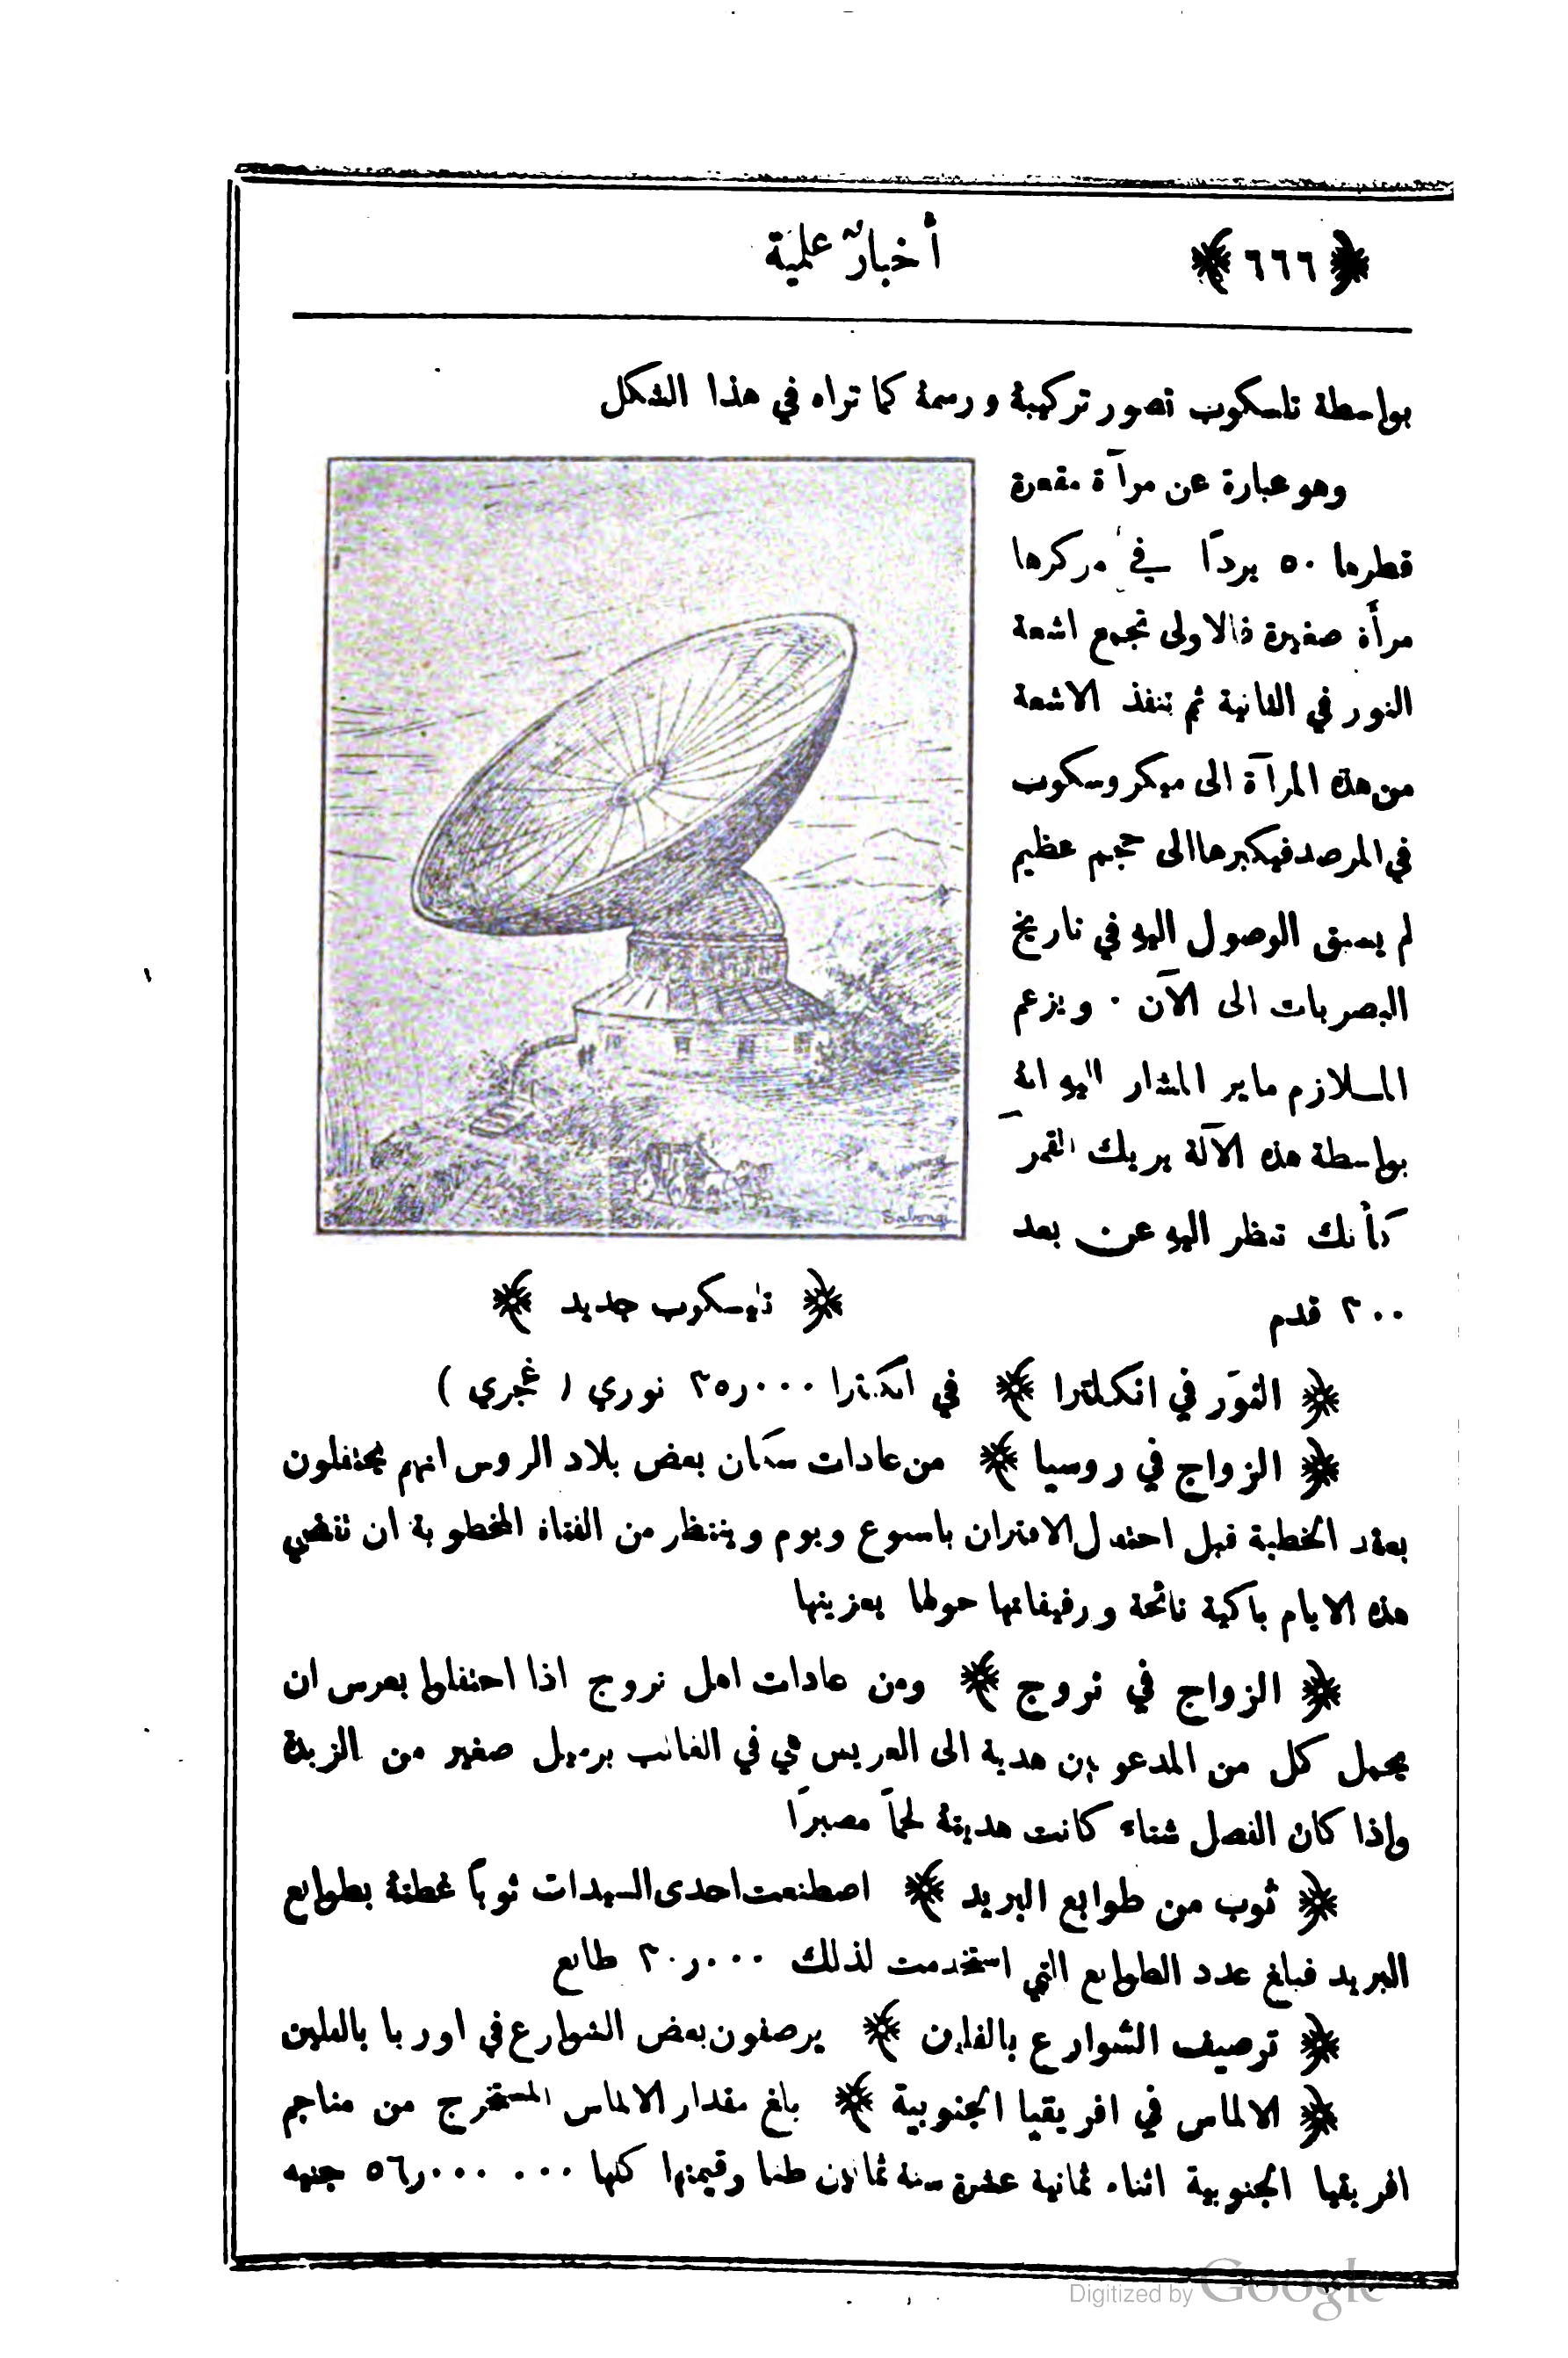 ﴿ ٦٦٦ ﴾
أخبارٌ علميّة
بواسطة تلسكوب تصور تركيبة ورسمة كما تراه في هذا الشكل
وهو عبارة عن مرآة مقعرة
قطرها ٥٠ يرداً في مركزها
مرأة صغيرة فالاولى تجمع اشعة
النور في الثانية ثم تنفذ الاشعة
من هذه المرآة الى ميكروسكوب
في المرصد فيكبرها الى حجم عظيم
لم يسبق الوصول اليه في تاريخ
البصريات الى الآن . ويزعم
الملازم ماير المشار اليه انه
بواسطة هذه الآلة يريك القمر
كأنك تنظر اليه عن بعد
٢٠٠ قدم
﴿ تليسكوب جديد ﴾
﴿ النوَر في انكلترا ﴾ في انكلترا ٢٥٫٠٠٠ نوري ( غجري )
﴿ الزواج في روسيا ﴾ من عادات سكان بعض بلاد الروس انهم يحتفلون
بعقد الخطبة قبل احتفال الاقتران باسبوع ويوم وينتظر من الفتاة المخطوبة ان تقضي
هذه الايام باكية نائحة ورفيقاتها حولها يعزينها
﴿ الزواج في نروج ﴾ ومن عادات اهل نروج اذا احتفلوا بعرس ان
يحمل كل من المدعوين هدية الى العريس هي في الغالب برميل صغير من الزبدة
واذا كان الفصل شتاء كانت هديتة لحماً مصبراً
﴿ ثوب من طوابع البريد ﴾ اصطنعت احدى السيدات ثوباً غطتة بطوابع
البريد فبلغ عدد الطوابع التي استخدمت لذلك ٢٠٫٠٠٠ طابع
﴿ ترصيف الشوارع بالفلين ﴾ يرصفون بعض الشوارع في اوربا بالفلين
﴿ الالماس في افريقيا الجنوبية ﴾ بلغ مقدار الالماس المستخرج من مناجم
افريقيا الجنوبية اثناء ثمانية عشرة سنة ثمانون طنا وقيمتها كلها ٥٦٫٠٠٠ ٠٠٠ جنيه
Digitized by Google